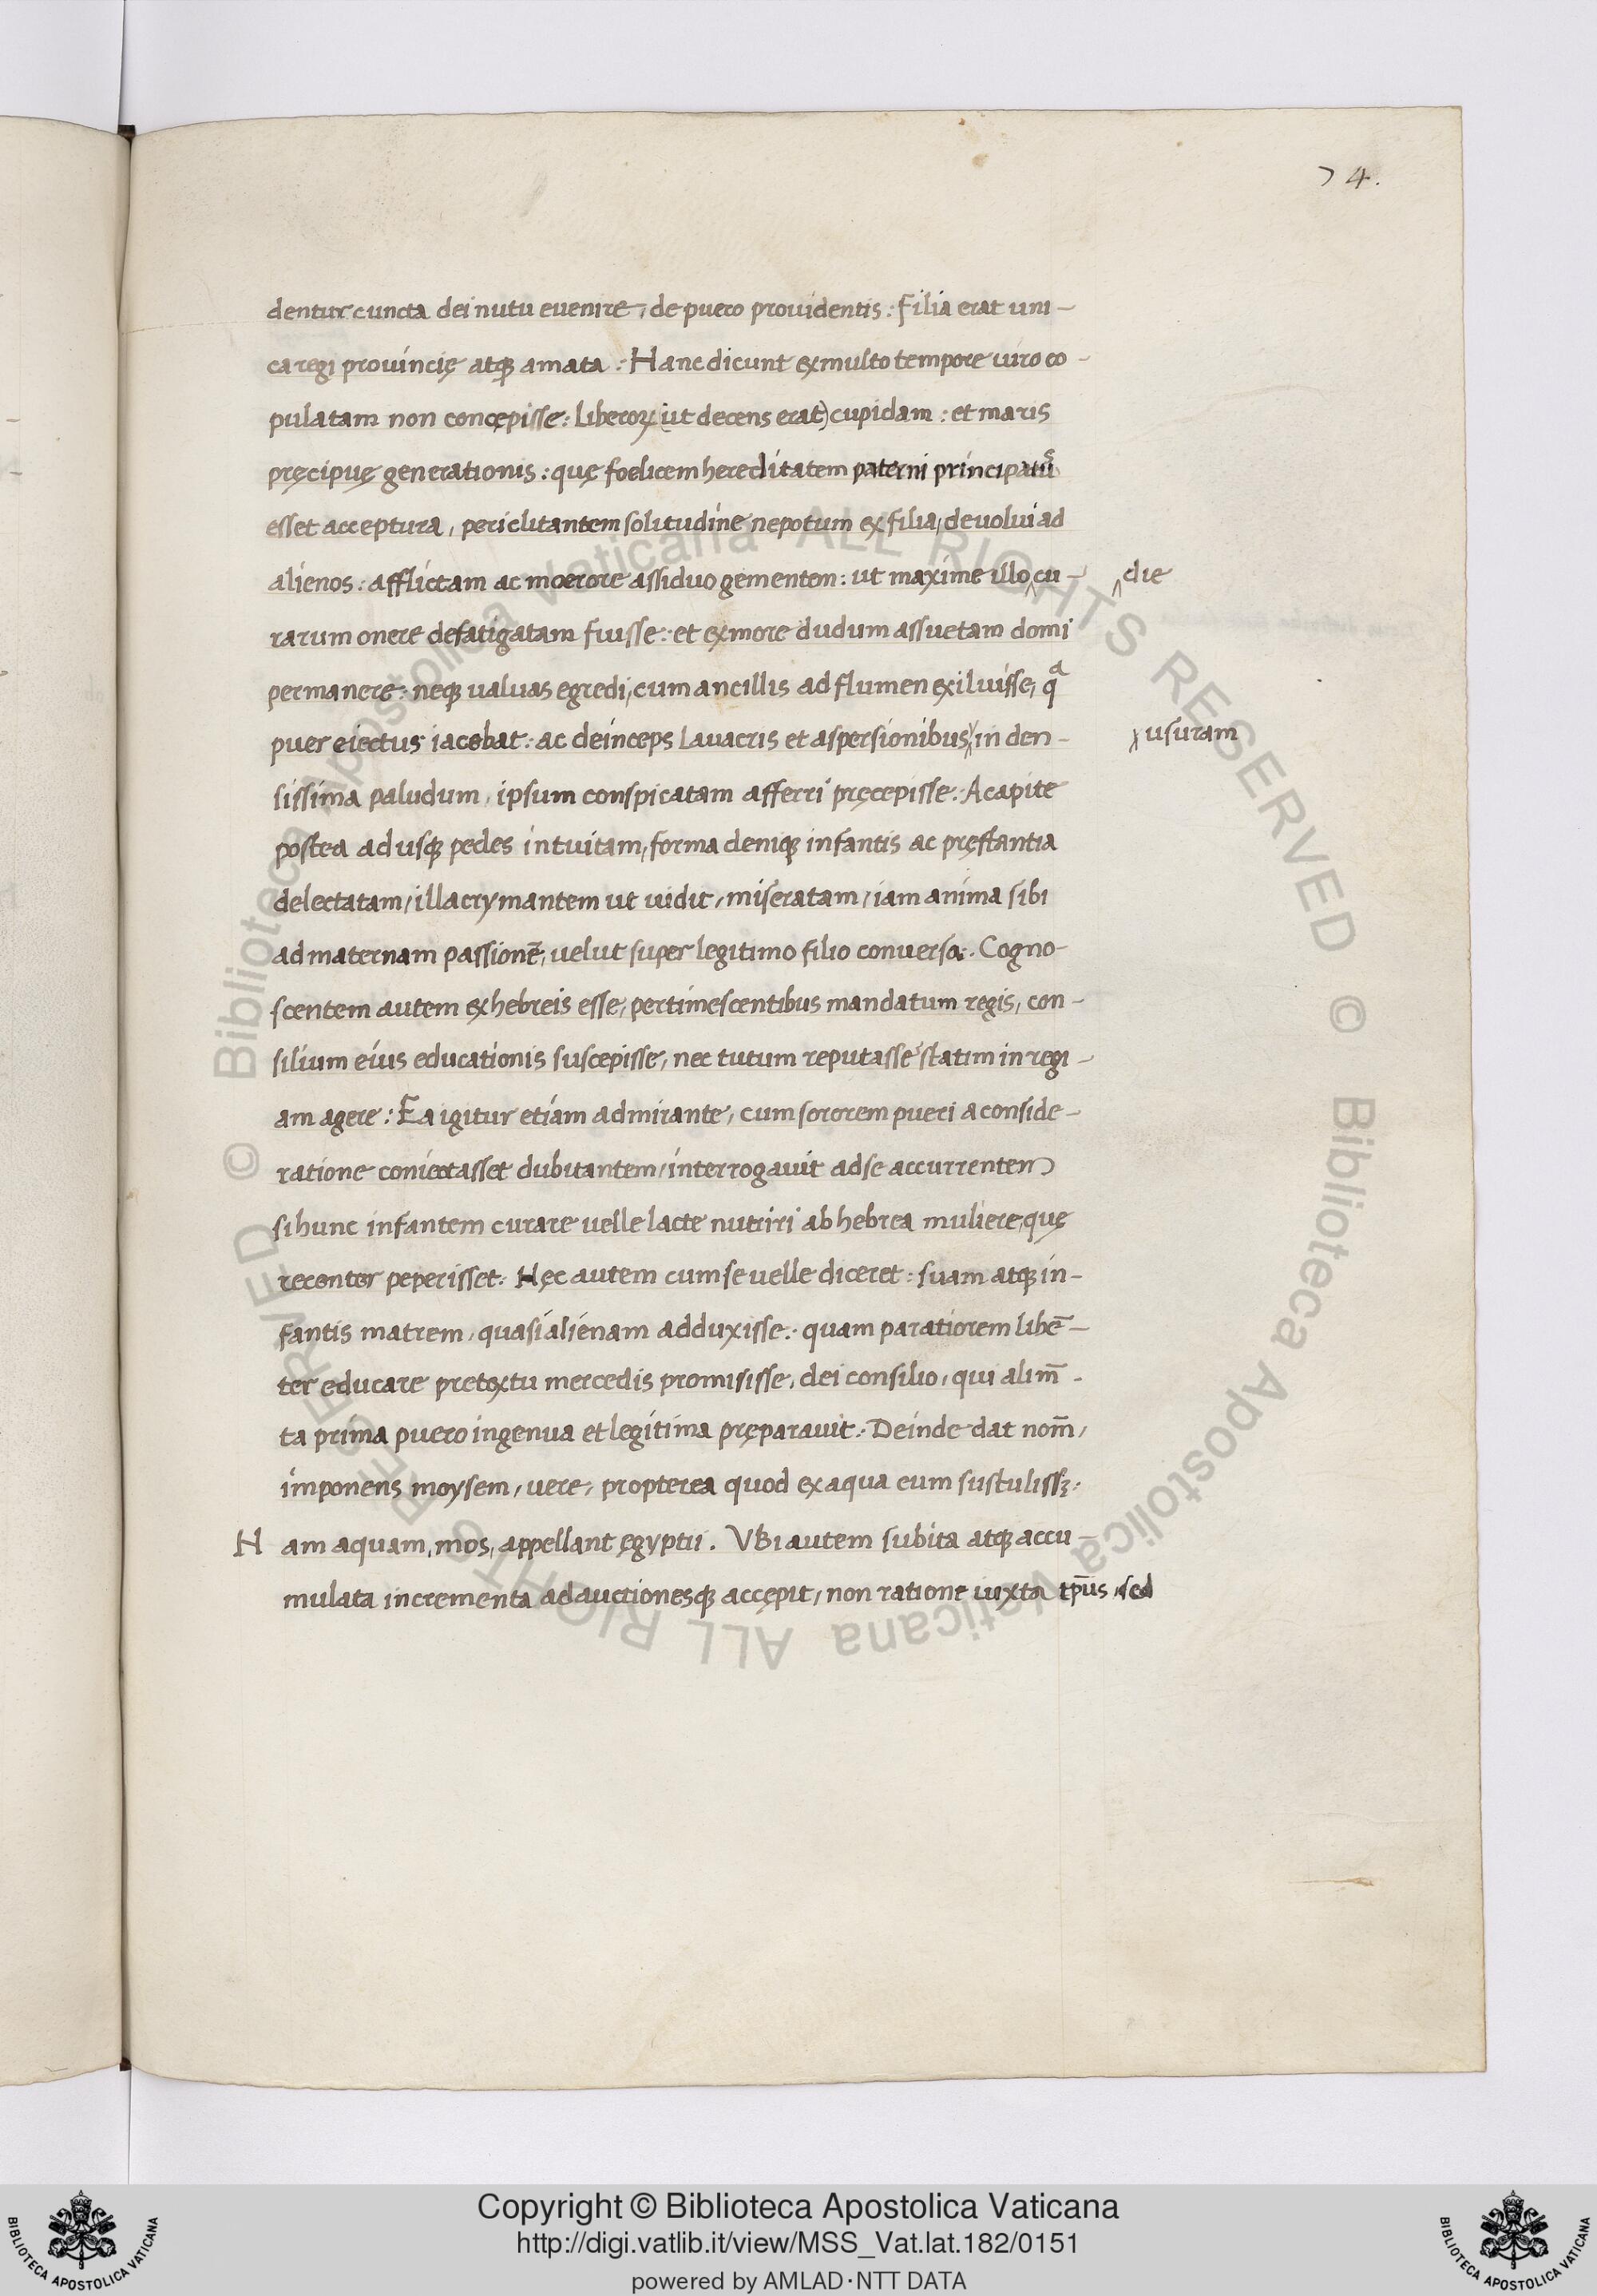 74.
dentur cuncta dei nutu euenire, de puero prouidentis: Filia erat uni-
ca regi prouincię atq; amata: Hanc dicunt ex multo tempore uiro co-
pulatam non concępisse: liberoꝝ (ut decens erat) cupidam: et maris
pręcipuę generationis: quę foelicem hereditatem paterni principatus
esset acceptura, periclitantem solitudine nepotum ex filia, deuolui ad
alienos: afflictam ac moerore assiduo gementem: ut maxime illo ‸ cu-
‸ die
rarum onere defatigatam fuisse: et ex more dudum assuetam domi
permanere: neq; ualuas egredi, cum ancillis ad flumen exiluisse, qᵃ
puer eiectus iacebat: ac deinceps Lauacris et aspersionibus ‸ in den-
usuram
sissima paludum, ipsum conspicatam afferri pręcepisse: A capite
postea ad usq; pedes intuitam, forma deniq; infantis ac pręstantia
delectatam, illacrymantem ut uidit, miseratam, iam anima sibi
ad maternam passionē, uelut super legitimo filio conuersa: Cogno-
scentem autem ex hebreis esse, pertimescentibus mandatum regis, con-
silium eius educationis suscepisse, nec tutum reputasse statim in regi-
am agere: Ea igitur etiam admirante, cum sororem pueri a conside-
ratione coniectasset dubitantem, interrogauit ad se accurrentem
si hunc infantem curare uelle lacte nutriri ab hebrea muliere, quę
recenter peperisset: Hęc autem cum se uelle diceret: suam atq; in-
fantis matrem, quasi alienam adduxisse: quam paratiorem libē-
ter educare pretextu mercedis promisisse, dei consilio, qui alim̄-
ta prima puero ingenua et legitima pręparauit: Deinde dat nom̄,
imponens moysem, uere, propterea quod ex aqua eum sustulissꝫ:
H am aquam, mos, appellant ęgyptii. VBi autem subita atq; accu-
mulata incrementa adauctionesq; accępit, non ratione iuxta tp̄us, sed
Copyright © Biblioteca Apostolica Vaticana
http://digi.vatlib.it/view/MSS_Vat.lat.182/0151
powered by AMLAD·NTT DATA
BIBLIOTECA APOSTOLICA VATICANA
BIBLIOTECA APOSTOLICA VATICANA
© Biblioteca Apostolica Vaticana ALL RIGHTS RESERVED © Biblioteca Apostolica Vaticana ALL RIGHTS RESERVED